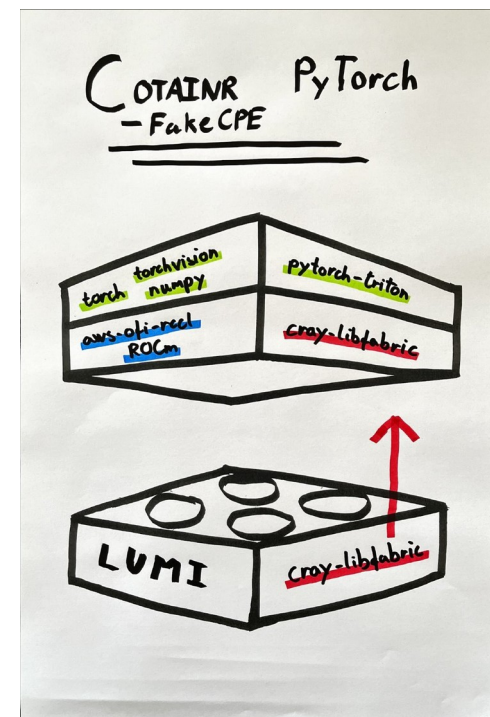 COTAINR PyTorch
- FakeCPE
torchvision
torch numpy
pytorch-triton
aws-ofi-rccl
ROCm
cray-libfabric
LUMI
cray-libfabric